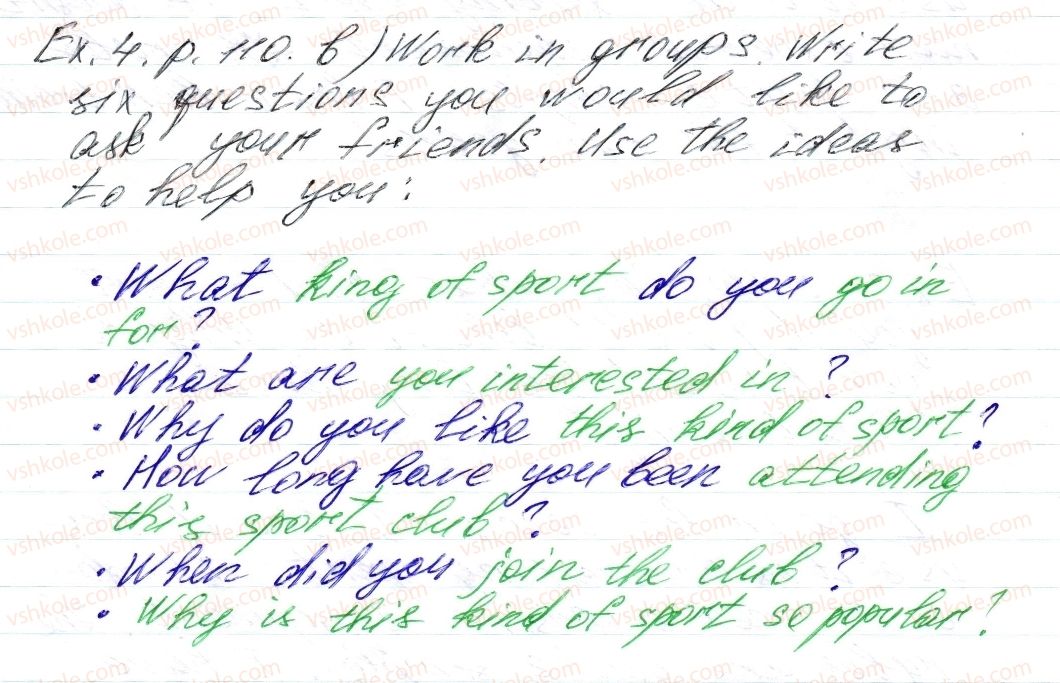 Ex. 4. p. 110. b) Work in groups. Write
six questions you would like to
ask your friends. Use the ideas
to help you:
• What king of sport do you go in
for?
• What are you interested in ?
• Why do you like this kind of sport?
• How long have you been attending
this sport club ?
• When did you join the club ?
• Why is this kind of sport so popular?